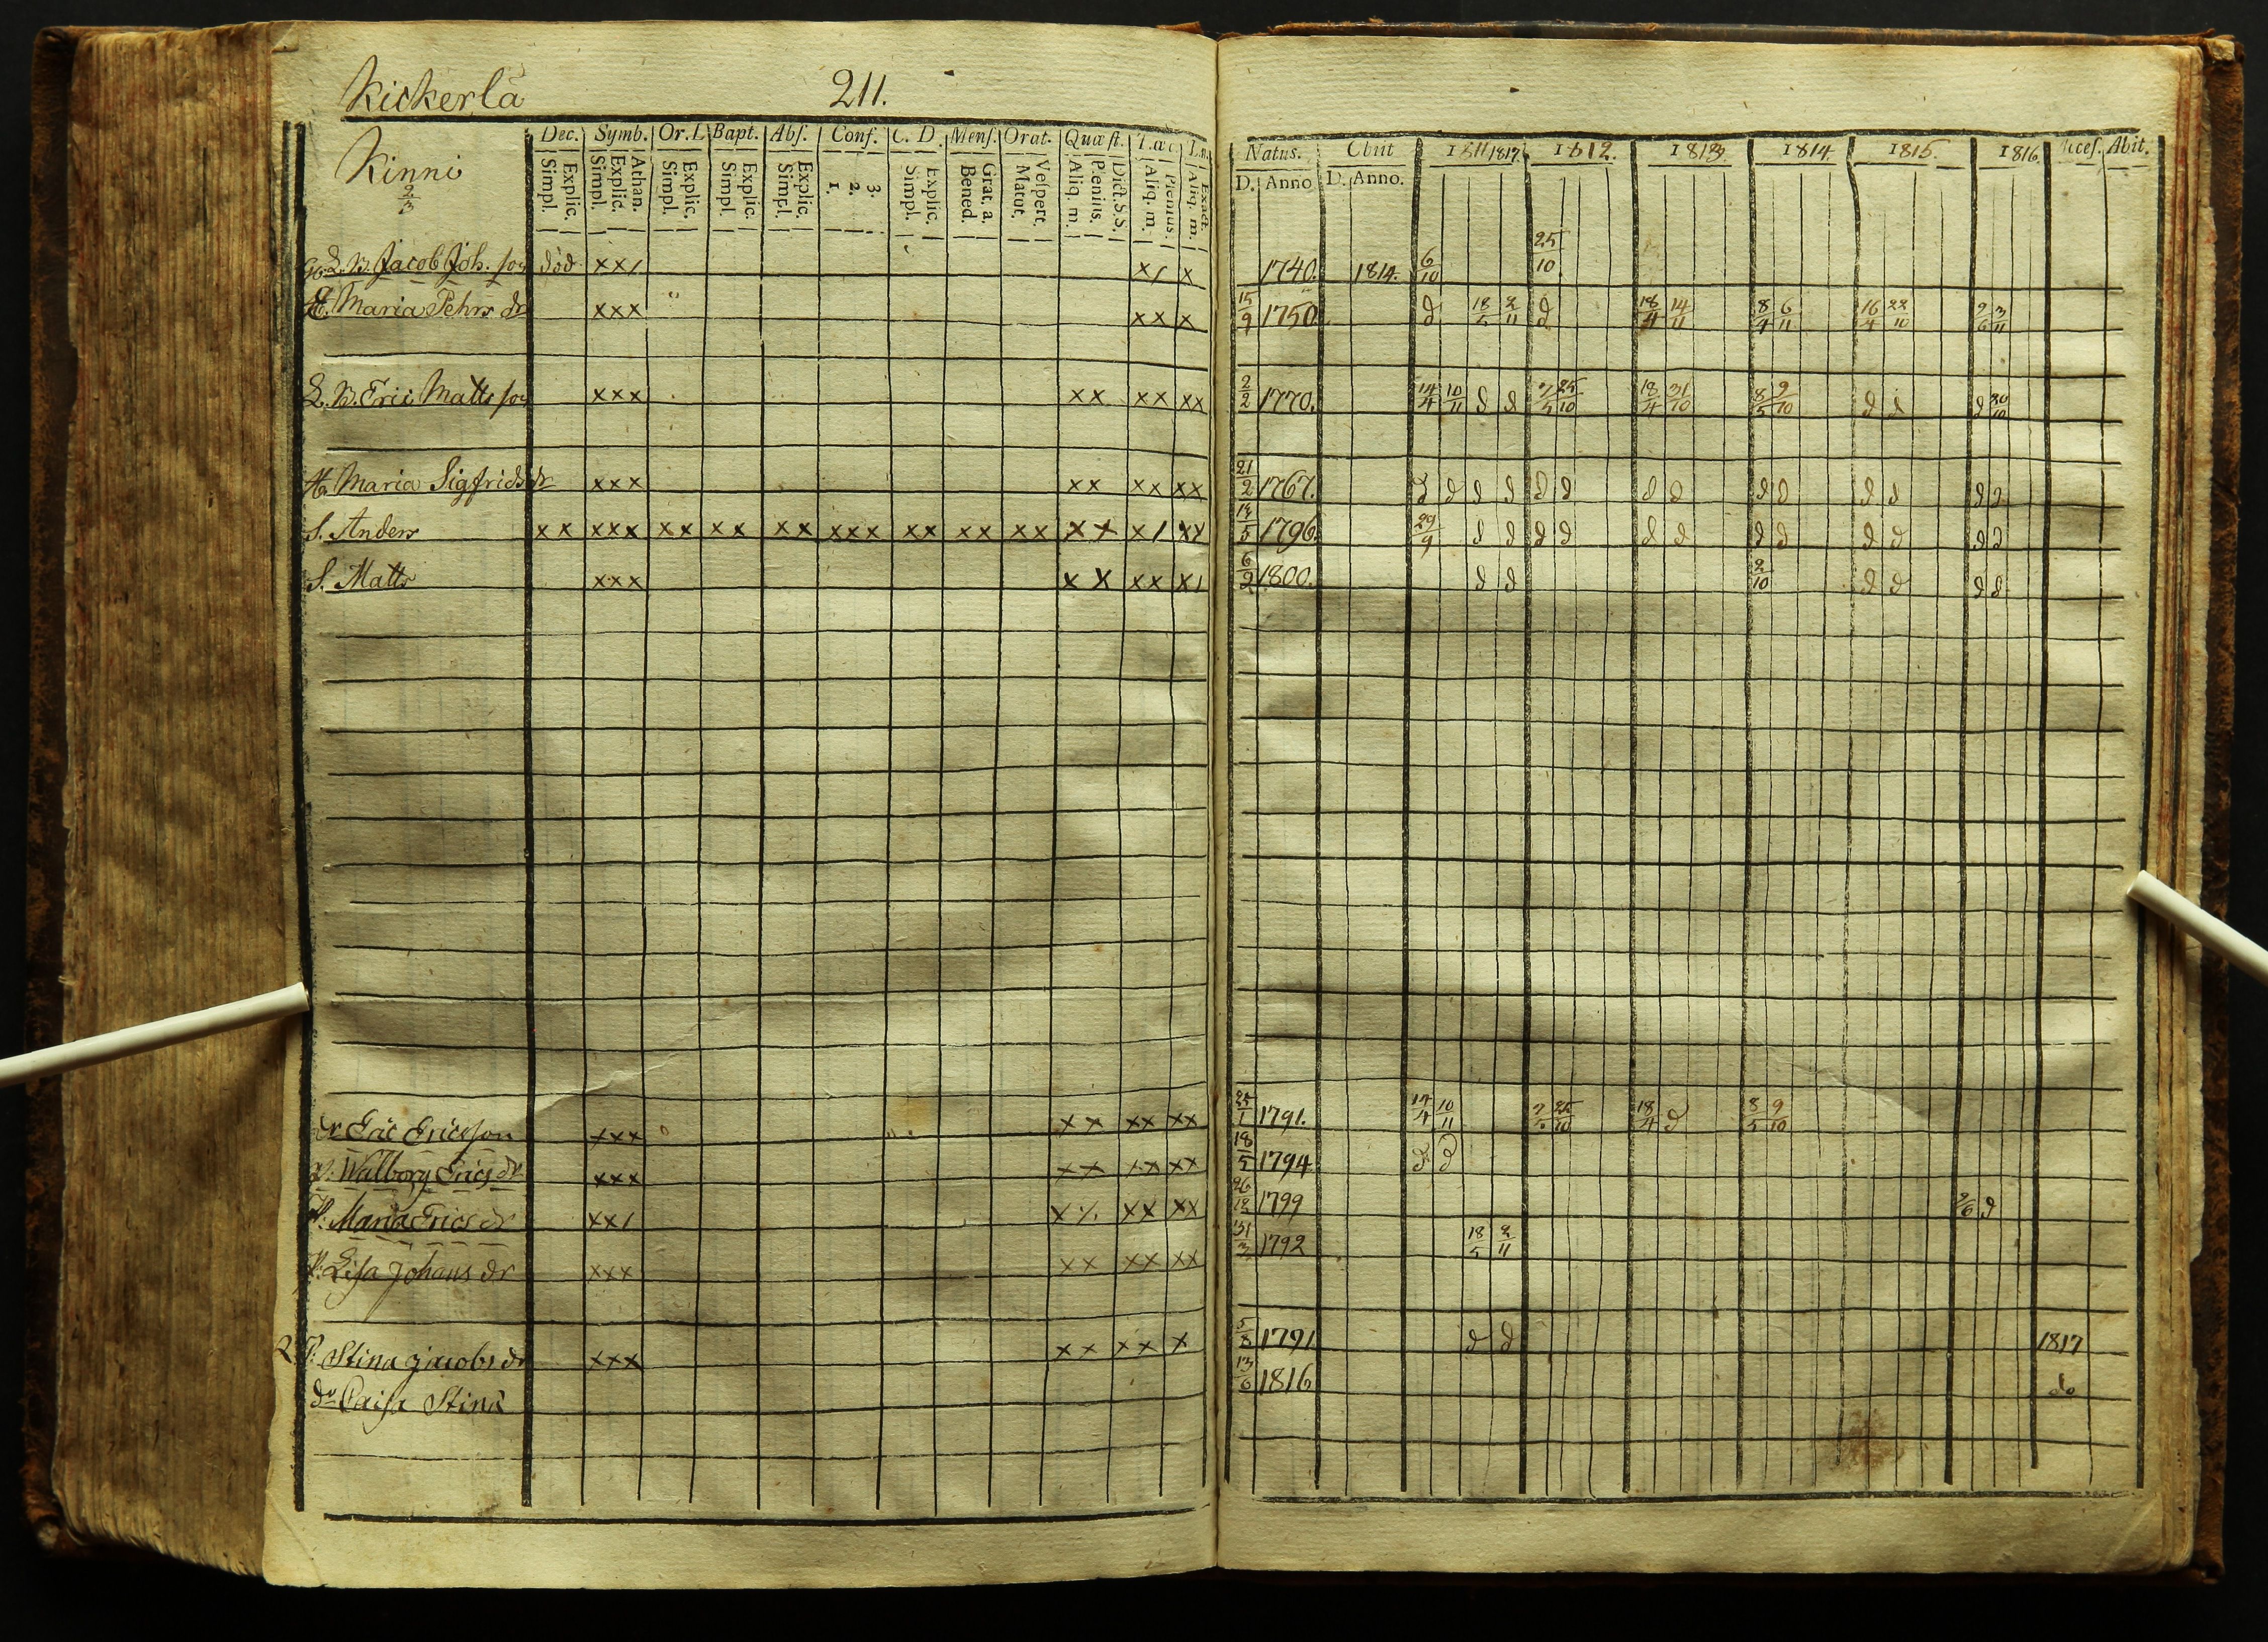 Kickerlä 211.
Dec. Symb. Or. L Bapt. Abs. Conf. C. D. Mens. Orat. Quæst.
Explic. Simpl. Athan. Explic. Simpl. Explic. Simpl. Explic. Simpl. Explic. Simpl. 3. 2. 1. Explic. Simpl. Grat. a. Bened. Vespert. Matut. Dict. S. S. Plenius. Aliq. m. Plenius. Aliq. m. Exact. Aliq. m.
Kinni
2/3
Natus. Obiit 1811 1817 1812. 1813. 1814 1815. 1816 Acces. Abit.
D. Anno D. Anno.
L. B. Jacob Joh. son död xx/ x/ x 1740. 1814. 6/10 25/10
H. Maria Pehrs dr xxx xx x 15/9 1750 d 18/5 2/11 d 18/4 14/11 8/4 6/11 16/4 22/10 9/6 3/11
L. B. Eric Matts son xxx xx xx xx 2/2 1770. 14/4 10/11 d d 7/5 25/10 18/4 31/10 8/5 9/10 d d d 20/10
H. Maria Sigfrids dr xxx xx xx xx 21/2 1767. d d d d d d d d d d d d d d
S. Anders xx xxx xx xx xx xxx xx xx xx xx x/ xx 14/5 1796. 29/9 d d d d d d d d d d d d
S. Matts xxx xx xx x/ 6/2 1800. d d 2/10 d d d d
dr Eric Ericsson xxx xx xx xx 25/1 1791. 14/4 10/11 7/5 25/10 18/4 d 8/5 9/10
p. Walborg Erics dr xxx xx xx xx 18/5 1794 d d
P. Maria Erics dr xx/ x /. xx xx 26/12 1799 9/6 d
P. Lisa Johans dr xxx xx xx xx 31/3 1792 18/5 2/11
P. Stina Jacobs dr xxx xx xx x 1791 d d 1817
dr Caisa Stina 13/6 1816 do